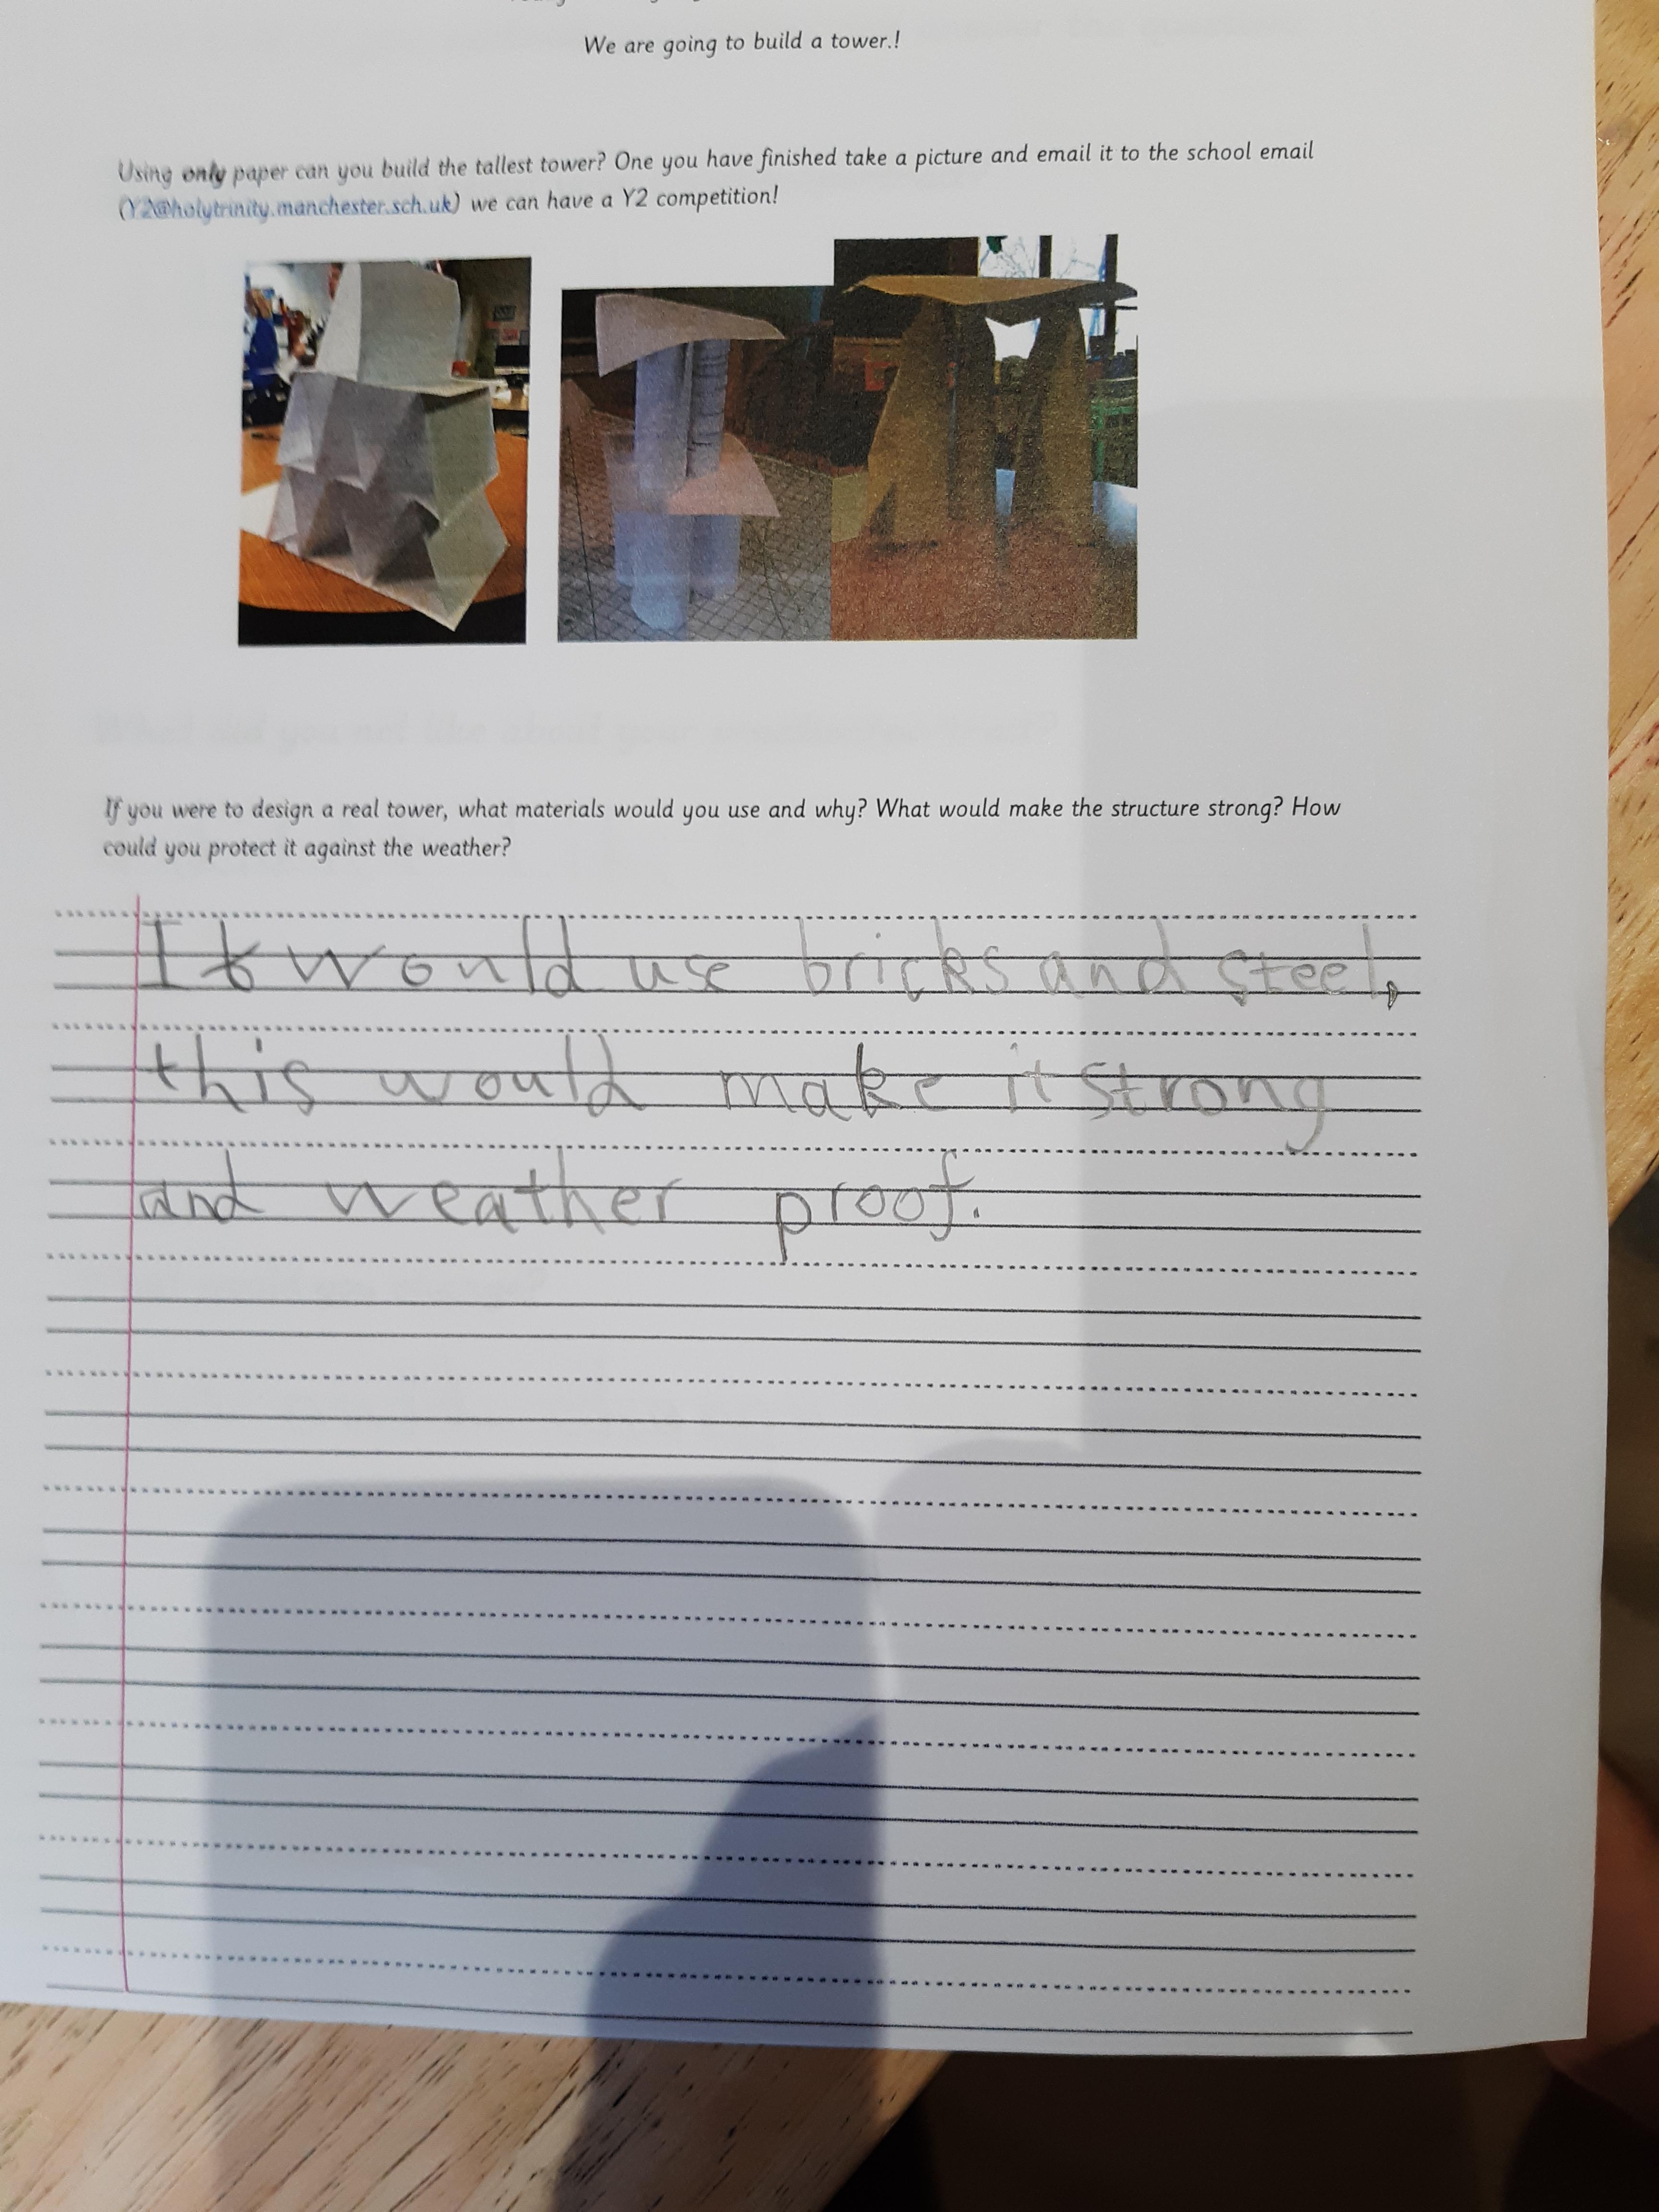 We are going to build a tower.!
Using only paper can you build the tallest tower? One you have finished take a picture and email it to the school email
(Y2@holytrinity.manchester.sch.uk) we can have a Y2 competition!
If you were to design a real tower, what materials would you use and why? What would make the structure strong? How
could you protect it against the weather?
I would use bricks and steel,
this would make it strong
and weather proof.